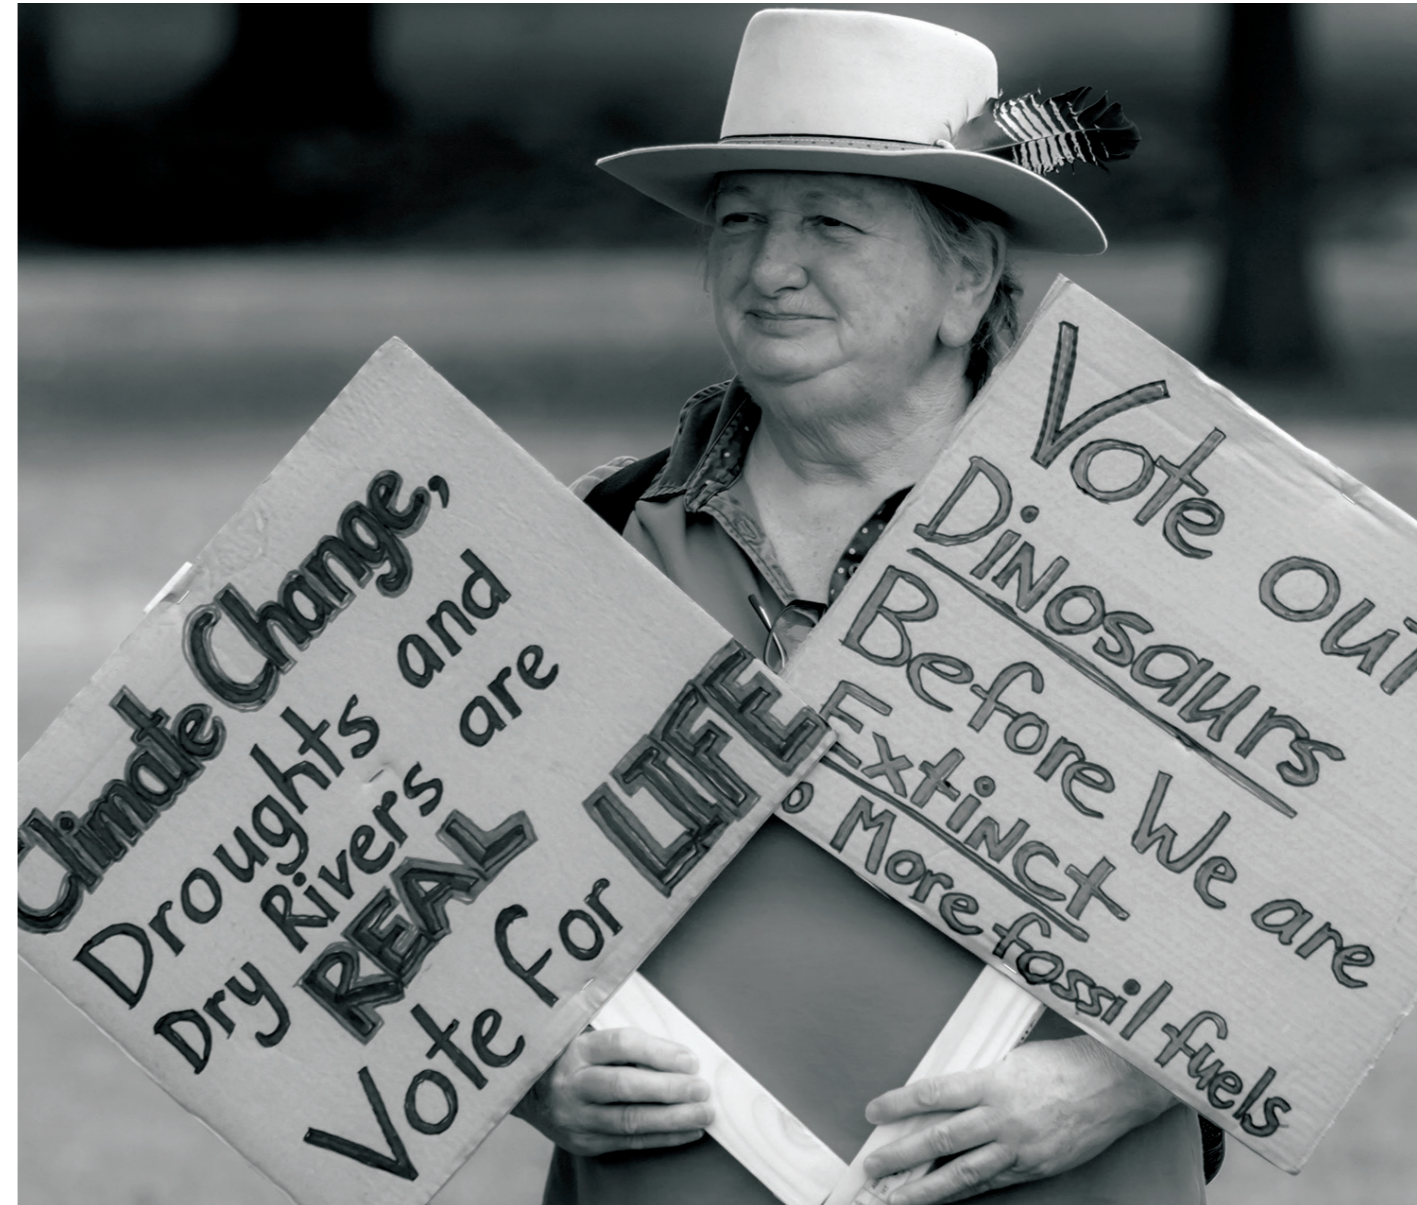 Climate Change,
Droughts and
Dry Rivers are
REAL
Vote for LIFE
Vote out
DiNosaurs
Before We are
ExtiNct
More fossil fuels